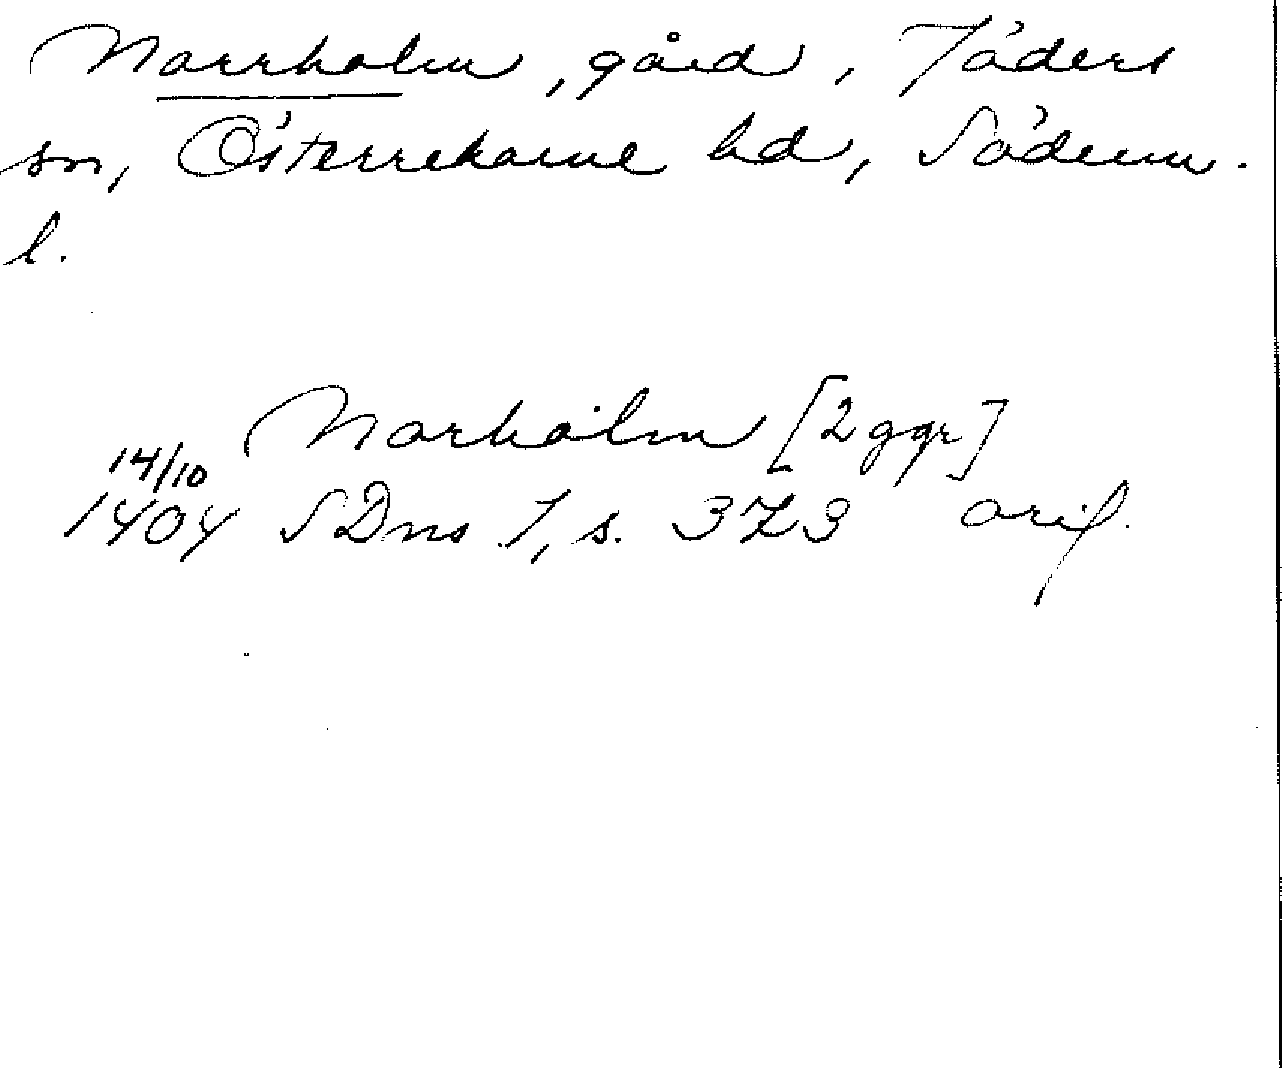 Norrholm, gård, Jäders
sn, Österrekarne hd, Söderm.
l.
Norholm [2 ggr]
14/10
1404 SDns 1, s. 373 orig.